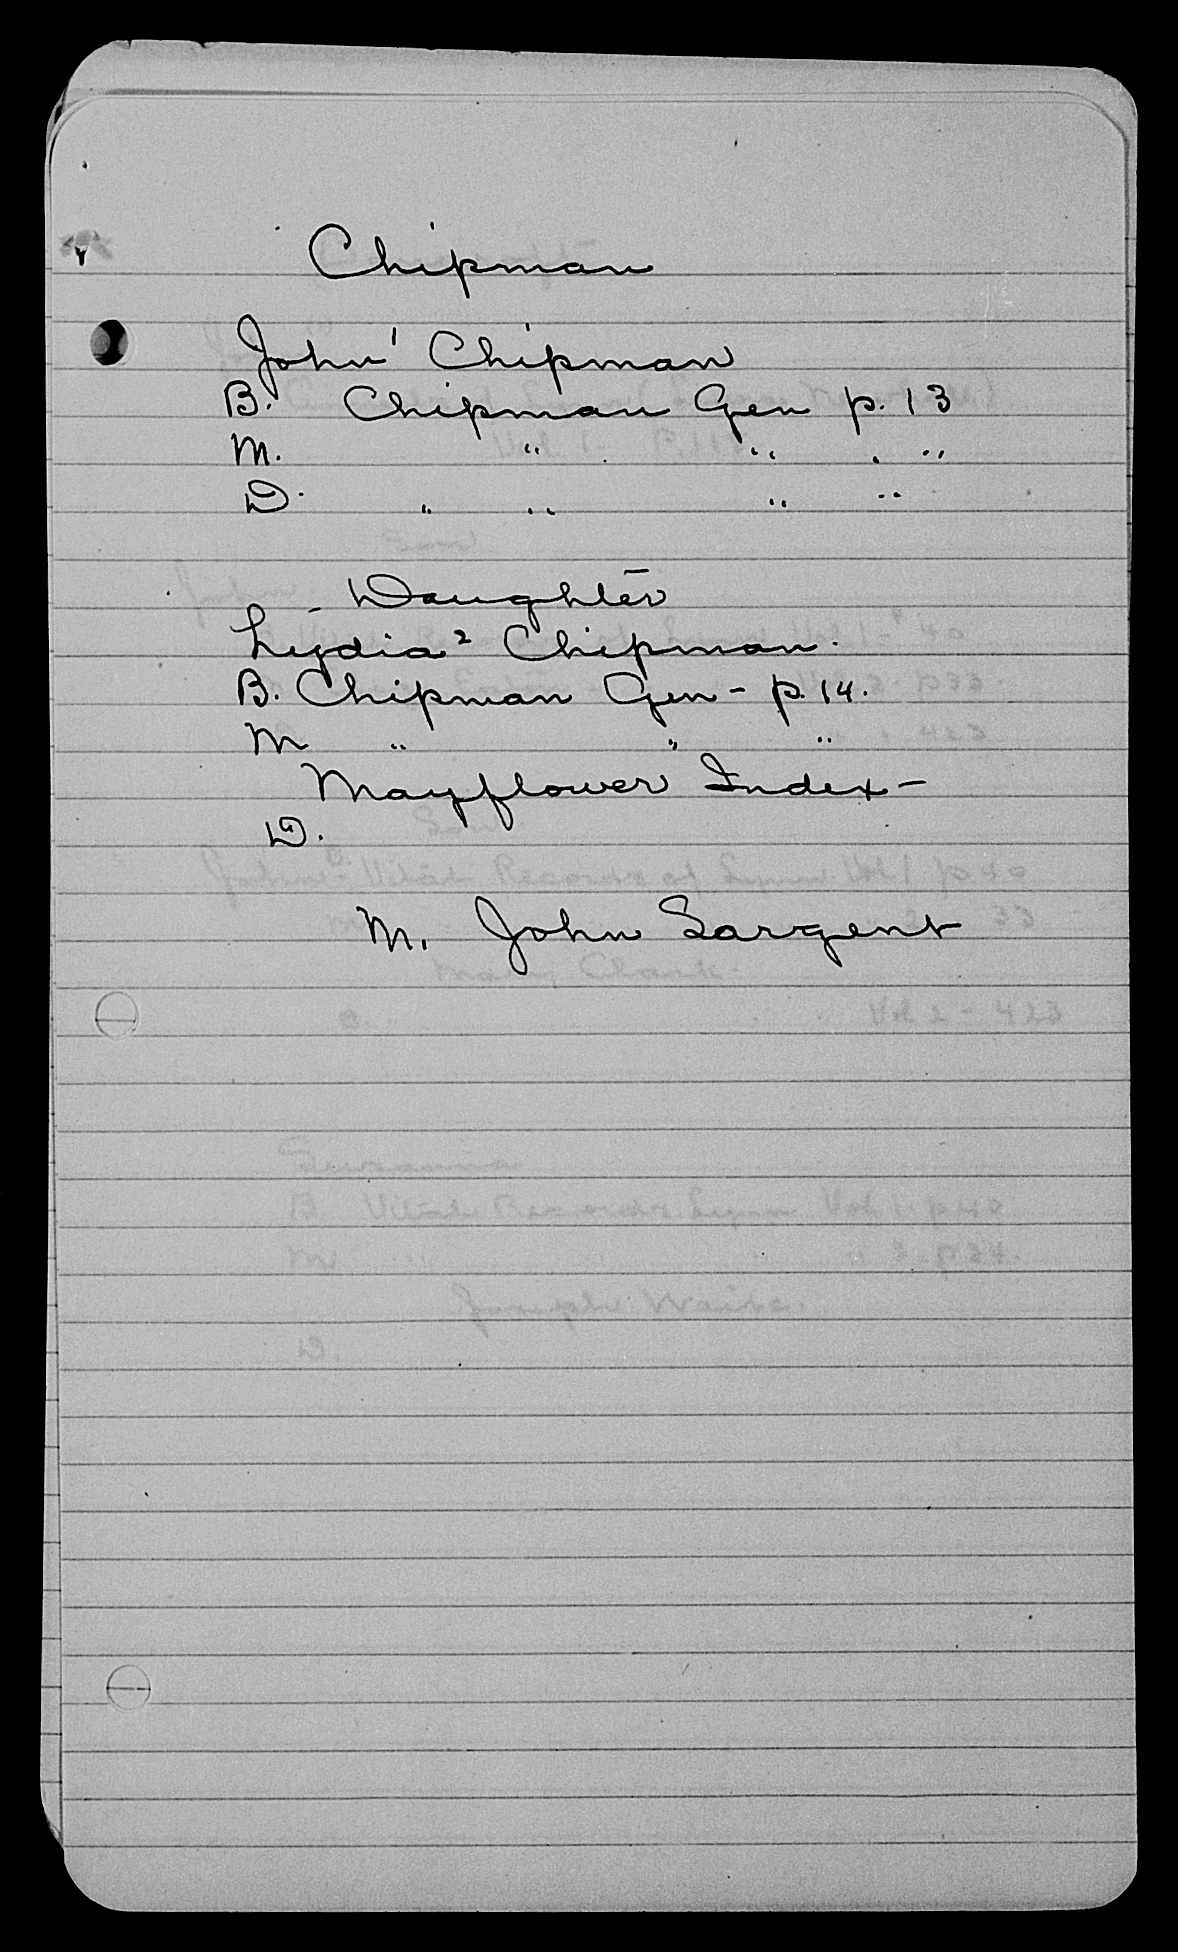 Chipman
John¹ Chipman
B. Chipman Gen p. 13
M. " " "
D. " " " "
Daughter
Lydia² Chipman.
B. Chipman Gen - p. 14.
M " " "
Mayflower Index -
D.
M. John Sargent